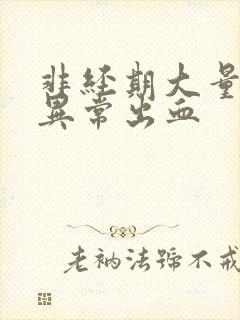 非经期大量
异常出血
老衲法号不戒